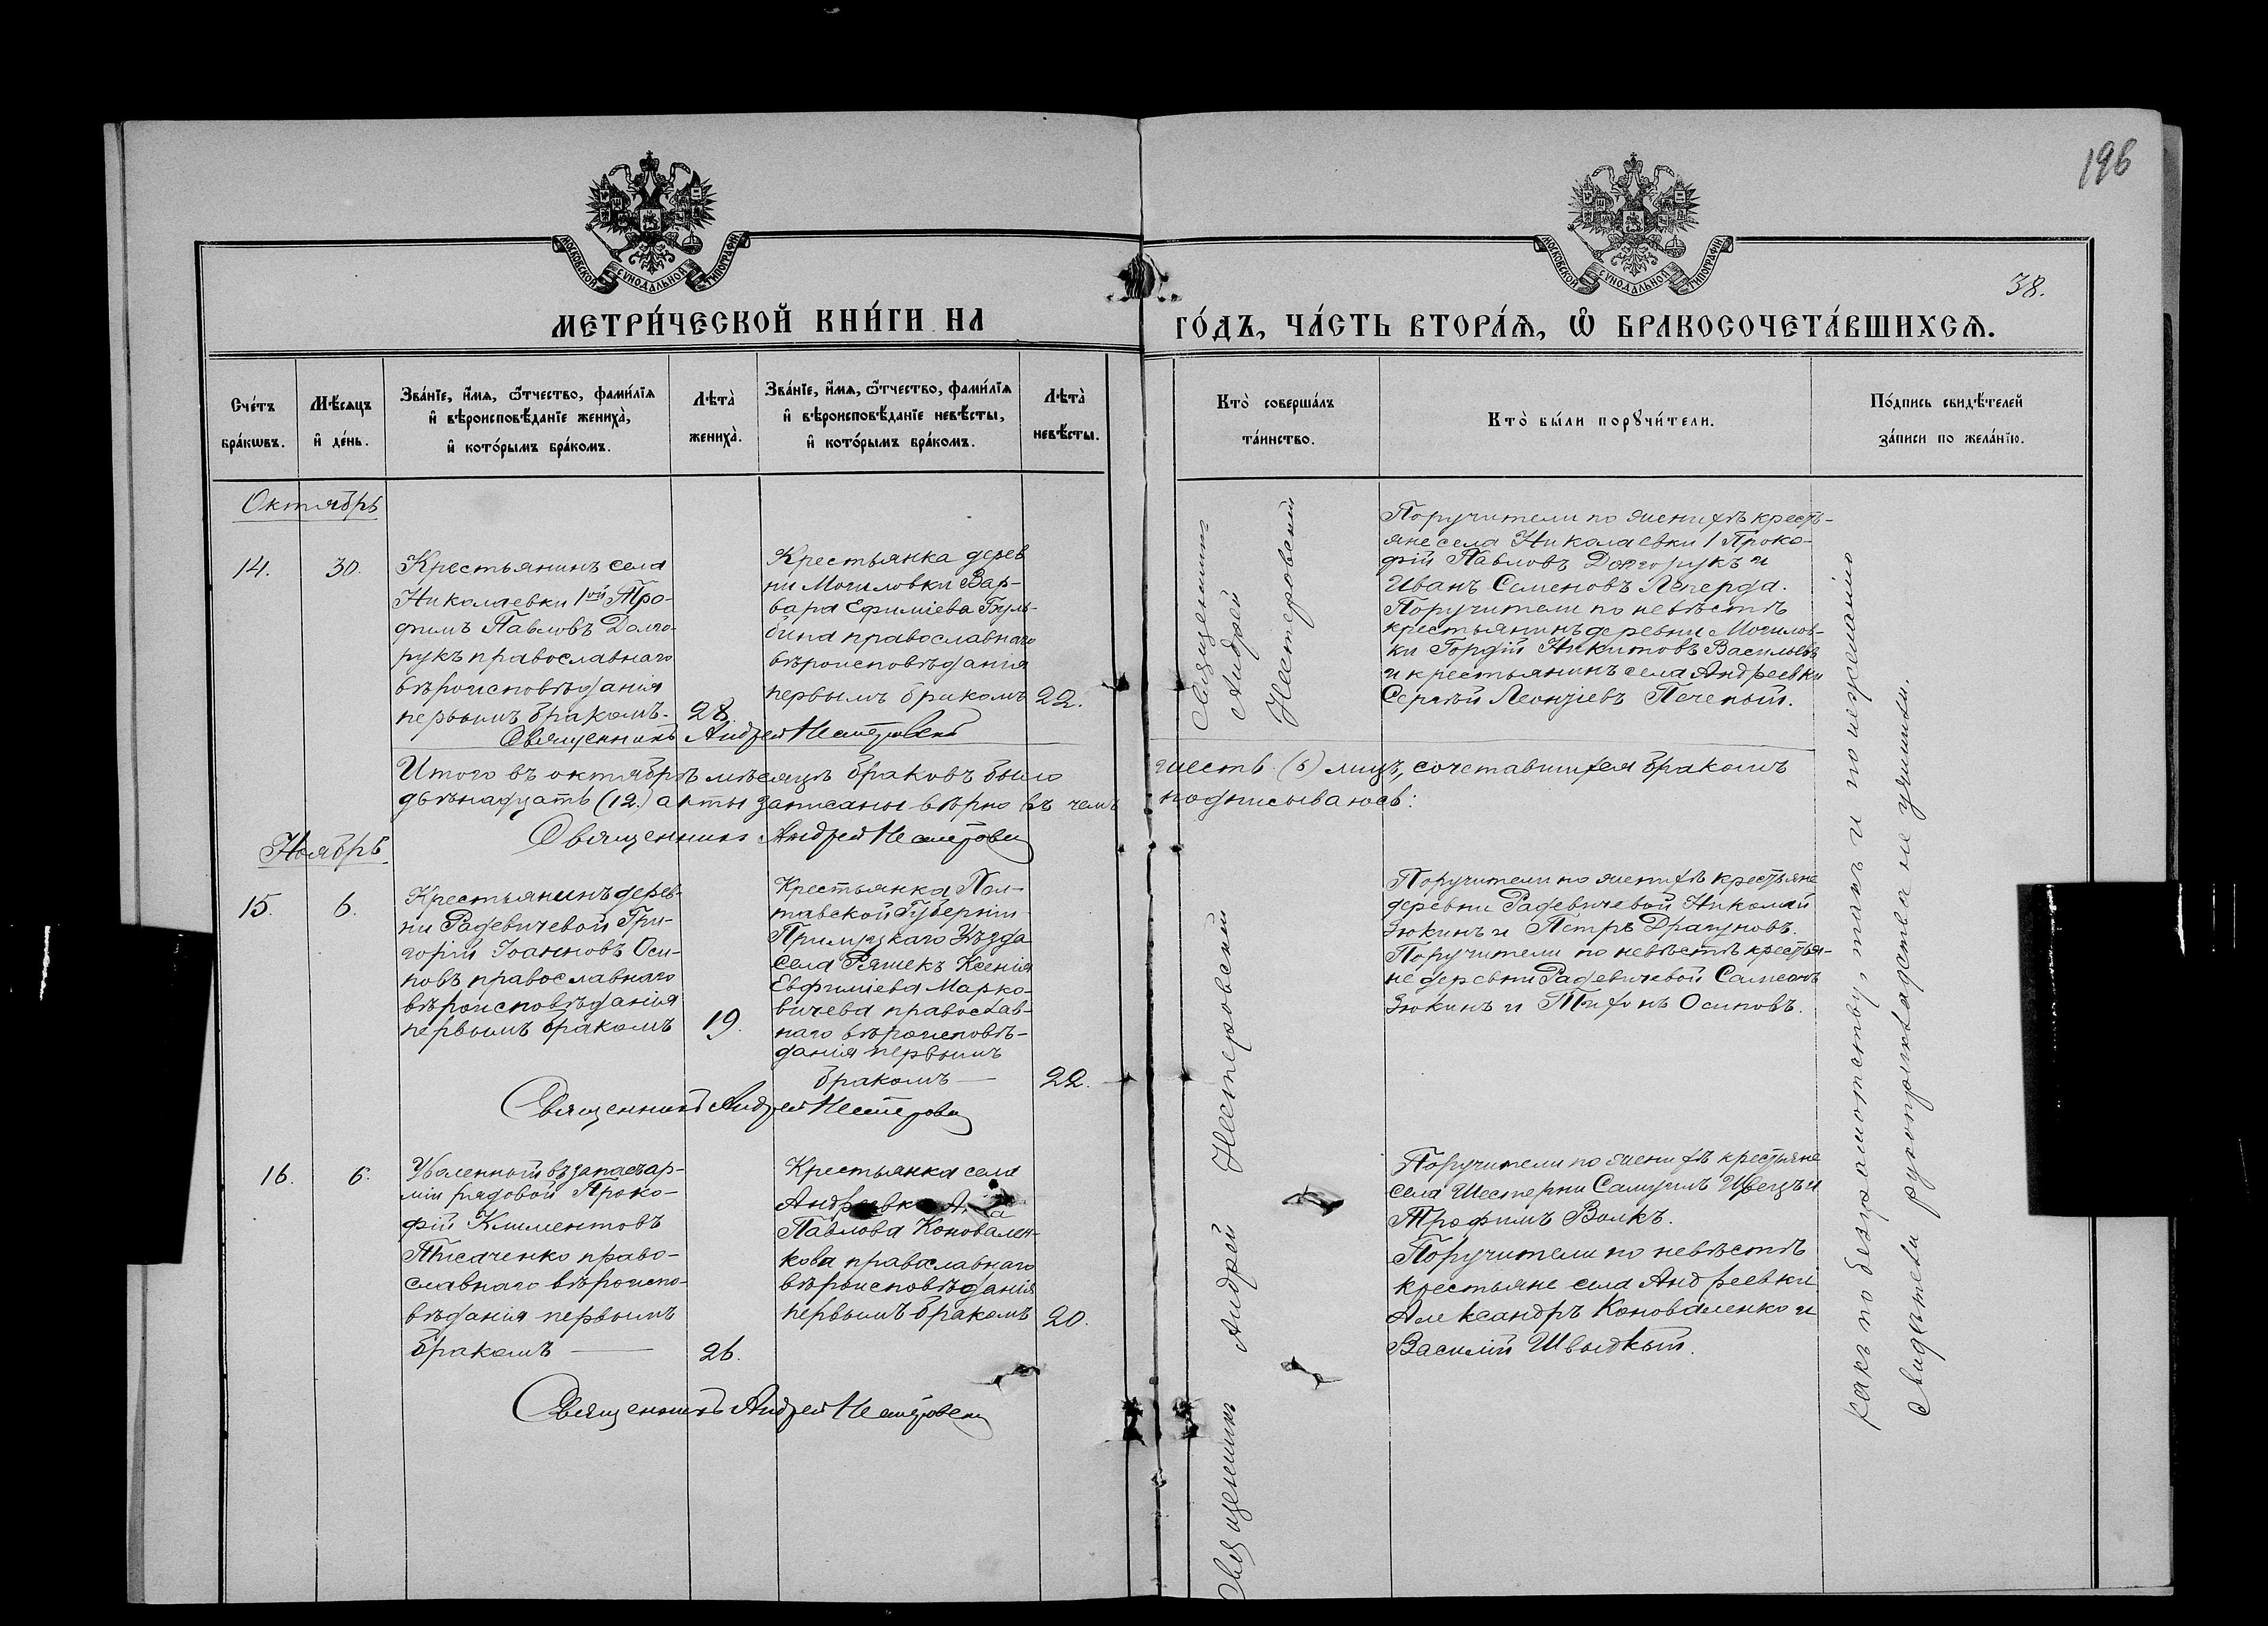 196
38.
МОСКОВСКОЙ СѴНОДАЛЬНОЙ ТИПОГРАФІИ
МОСКОВСКОЙ СѴНОДАЛЬНОЙ ТИПОГРАФІИ
МЕТРИ́ЧЕСКОЙ КНИ́ГИ НА
ГО́ДЪ, ЧА́СТЬ ВТОРА́Ѧ, Ѽ БРАКОСОЧЕТА́ВШИХСѦ.
Сче́тъ
бра́кѡвъ.
Мѣ́сяцъ
и҆ де́нь.
Зва́нїе, и҆́мѧ, ѻ҆́тчество, фами́лїѧ
и҆ вѣроисповѣ́данїе жениха̀,
и҆ кото́рымъ бра́комъ.
Лѣта̀
жениха̀.
Зва́нїе, и҆́мѧ, ѻ҆́тчество, фами́лїѧ
и҆ вѣроисповѣ́данїе невѣ́сты,
и҆ кото́рымъ бра́комъ.
Лѣта̀
невѣ́сты.
Кто̀ соверша́лъ
та́инство.
Кто̀ бы́ли порꙋчи́тели.
По́дпись свидѣ́телей
за́писи по жела́нїю.
Октябрь
14.
30.
Крестьянинъ села
Николаевки 1ой Тро-
фимъ Павловъ Долго-
рукъ православнаго
вѣроисповѣданія
первымъ бракомъ.
28.
Крестьянка дерев
ни Могиловки Вар-
вара Ефиміева Буль-
бина православнаго
вѣроисповѣданія
первымъ бракомъ
22.
Священникъ
Андрей
Нестеровскій
Поручители по женихѣ кресть-
яне села Николаевки 1 Проко-
фій Павловъ Долгорукъ и
Иванъ Семеновъ Леперда.
Поручители по невѣстѣ
крестьянинъ деревни Могилов-
ки Гордій Никитовъ Васильевъ
и крестьянинъ села Андреевки
Сергѣй Леонтіевъ Печеный.
Священникъ Андрей Нестеровскій
Итого въ октябрѣ мѣсяцѣ браковъ было шесть (6) лицъ, сочетавшихся бракомъ
двѣнадцать (12.) акты записаны вѣрно въ чемъ подписываюсь:
Священникъ Андрей Нестеровскій
Ноябрь
15.
6.
Крестьянинъ дерев-
ни Радевичевой Гри-
горій Іоанновъ Оси-
повъ православнаго
вѣроисповѣданія
первымъ бракомъ
19.
Крестьянка Пол-
тавской Губерніи
Прилуцкаго Уѣзда
села Ряшекъ Ксенія
Евфиміева Марко-
вичева православ-
наго вѣроисповѣ-
данія первымъ
бракомъ —
22.
Поручители по женихѣ крестьяне
деревни Радевичевой Николай
Зюкинъ и Петръ Драгуновъ.
Поручители по невѣстѣ крестья-
не деревни Радевичевой Самсонъ
Зюкинъ и Тихонъ Осиповъ.
Священникъ Андрей Нестеровскій
16.
6.
Уволенный въ запасъ ар-
міи рядовой Проко-
фій Климентовъ
Ткаченко право-
славнаго вѣроиспо-
вѣданія первымъ
бракомъ —
26.
Крестьянка села
Андреевки
Павлова Коновален-
кова православнаго
вѣроисповѣданія
первымъ бракомъ
20.
Священникъ Андрей Нестеровскій
Поручители по женихѣ крестьяне
села Шестерни Самуилъ Швецъ и
Трофимъ Волкъ.
Поручители по невѣстѣ
крестьяне села Андреевки
Александръ Коноваленко и
Василій Швыдкый.
Священникъ Андрей Нестеровскій
Свидѣтели рукоприкладства не учинили.
какъ по безграмотству, такъ и по нежеланію